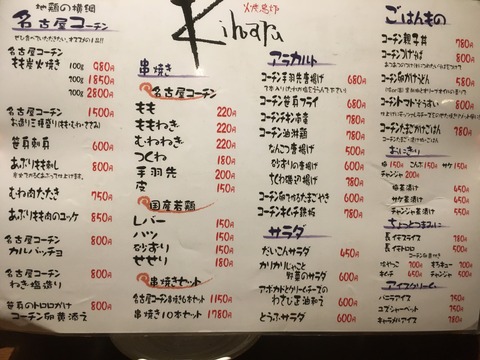 地鶏の横綱
名古屋コーチン
名古屋コーチン
もも炭火焼き 100g 980円
1850円
2800円
名古屋コーチン 1500円
笹身刺身 600円
あぶりもも刺し 800円
むね肉たたき 750円
あぶりもも肉のユッケ 850円
名古屋コーチン 800円
カルパッチョ
名古屋コーチン 800円
ねぎ塩造り
笹身のトロロがけ 800円
コーチン卵黄添え
Kiharu
串焼き
名古屋コーチン
もも 220円
ももわき 220円
むねわき 220円
つくね 180円
手羽先 200円
皮 150円
国産若鶏
レバー 150円
ハツ 150円
砂ずり 150円
せせり 180円
串焼きセット
名古屋コーチン串焼き6本セット 1150円
串焼き10本セット 1780円
アラカルト
コーチン手羽先唐揚げ 680円
コーチン笹身フライ 680円
コーチンチキン南蛮 780円
コーチン油淋鶏 780円
なんこつ唐揚げ 500円
砂ずりの唐揚げ 600円
ちく磯辺揚げ 780円
コーチン卵で作るたまごやき 600円
コーチンキムチ鉄板 780円
サラダ
だいこんサラダ 450円
カリカリじゃこと
野菜のサラダ 600円
アボカドとクリームチーズの
わさび醤油和え 600円
とうふサラダ 600円
ごはんもの
コーチン親子丼 780円
コーチンつけそば 800円
コーチン卵かけうどん 580円
コーチントマトそうすい 800円
コーチンたまごかけごはん 780円
おにぎり
梅 150円 こんぶ 150円 サケ 150円
チャンジャ 200円
梅茶漬け 500円
サケ茶漬け 500円
チャンジャ茶漬け 550円
ちょっとつまみに
長イモスライス
長イモトロロ 500円
キムチ チャンジャ
アイスクリーム
バニラアイス 350円
ユズシャーベット 350円
キャラメルアイス 380円